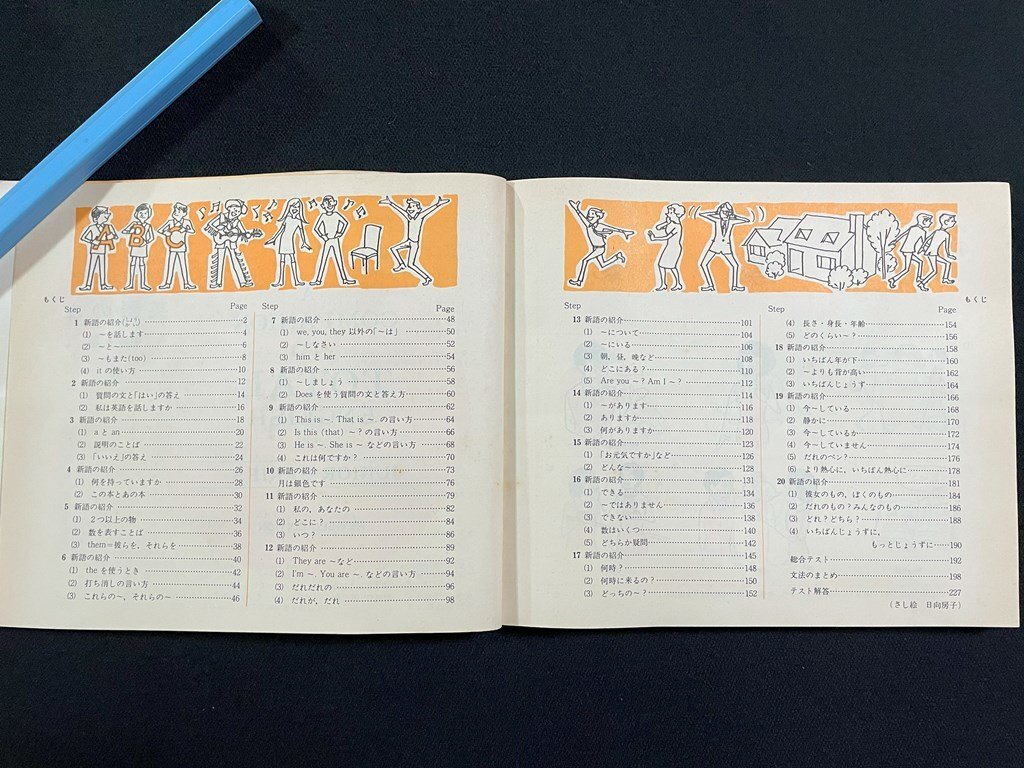 ABC
もくじ
Step Page
1 新語の紹介(しんごのしょうかい)……2
(1) 〜を話します……4
(2) 〜と〜……6
(3) 〜もまた(too)……8
(4) it の使い方……10
2 新語の紹介……12
(1) 質問の文と「はい」の答え……14
(2) 私は英語を話しますか……16
3 新語の紹介……18
(1) a と an……20
(2) 説明のことば……22
(3) 「いいえ」の答え……24
4 新語の紹介……26
(1) 何を持っていますか……28
(2) この本とあの本……30
5 新語の紹介……32
(1) 2つ以上の物……34
(2) 数を表すことば……36
(3) them=彼らを、それらを……38
6 新語の紹介……40
(1) the を使うとき……42
(2) 打ち消しの言い方……44
(3) これらの〜、それらの〜……46
Step Page
7 新語の紹介……48
(1) we, you, they 以外の「〜は」……50
(2) 〜しなさい……52
(3) him と her……54
8 新語の紹介……56
(1) 〜しましょう……58
(2) Does を使う質問の文と答え方……60
9 新語の紹介……62
(1) This is 〜. That is 〜. の言い方……64
(2) Is this (that) 〜? の言い方……66
(3) He is 〜. She is 〜 などの言い方……68
(4) これは何ですか?……70
10 新語の紹介……73
月は銀色です……76
11 新語の紹介……79
(1) 私の, あなたの……82
(2) どこに?……84
(3) いつ?……86
12 新語の紹介……89
(1) They are 〜など……92
(2) I'm 〜. You are 〜. などの言い方……94
(3) だれだれの……96
(4) だれが, だれ……98
もくじ
Step Page
13 新語の紹介……101
(1) 〜について……104
(2) 〜にいる……106
(3) 朝, 昼, 晩など……108
(4) どこにある?……110
(5) Are you 〜? Am I 〜?……112
14 新語の紹介……114
(1) 〜があります……116
(2) ありますか……118
(3) 何がありますか……120
15 新語の紹介……123
(1) 「お元気ですか」など……126
(2) どんな〜……128
16 新語の紹介……131
(1) できる……134
(2) 〜ではありません……136
(3) できない……138
(4) 数はいくつ……140
(5) どちらか疑問……142
17 新語の紹介……145
(1) 何時?……148
(2) 何時に来るの?……150
(3) どっちの〜?……152
Step Page
(4) 長さ・身長・年齢……154
(5) どのくらい〜?……156
18 新語の紹介……158
(1) いちばん年が下……160
(2) 〜よりも背が高い……162
(3) いちばんじょうず……164
19 新語の紹介……166
(1) 今〜している……168
(2) 静かに……170
(3) 今〜しているか……172
(4) 今〜していません……174
(5) だれのペン?……176
(6) より熱心に, いちばん熱心に……178
20 新語の紹介……181
(1) 彼女のもの, ぼくのもの……184
(2) だれのもの?みんなのもの……186
(3) どれ?どちら?……188
(4) いちばんじょうずに,
もっとじょうずに……190
総合テスト……192
文法のまとめ……198
テスト解答……227
(さし絵 日向房子)